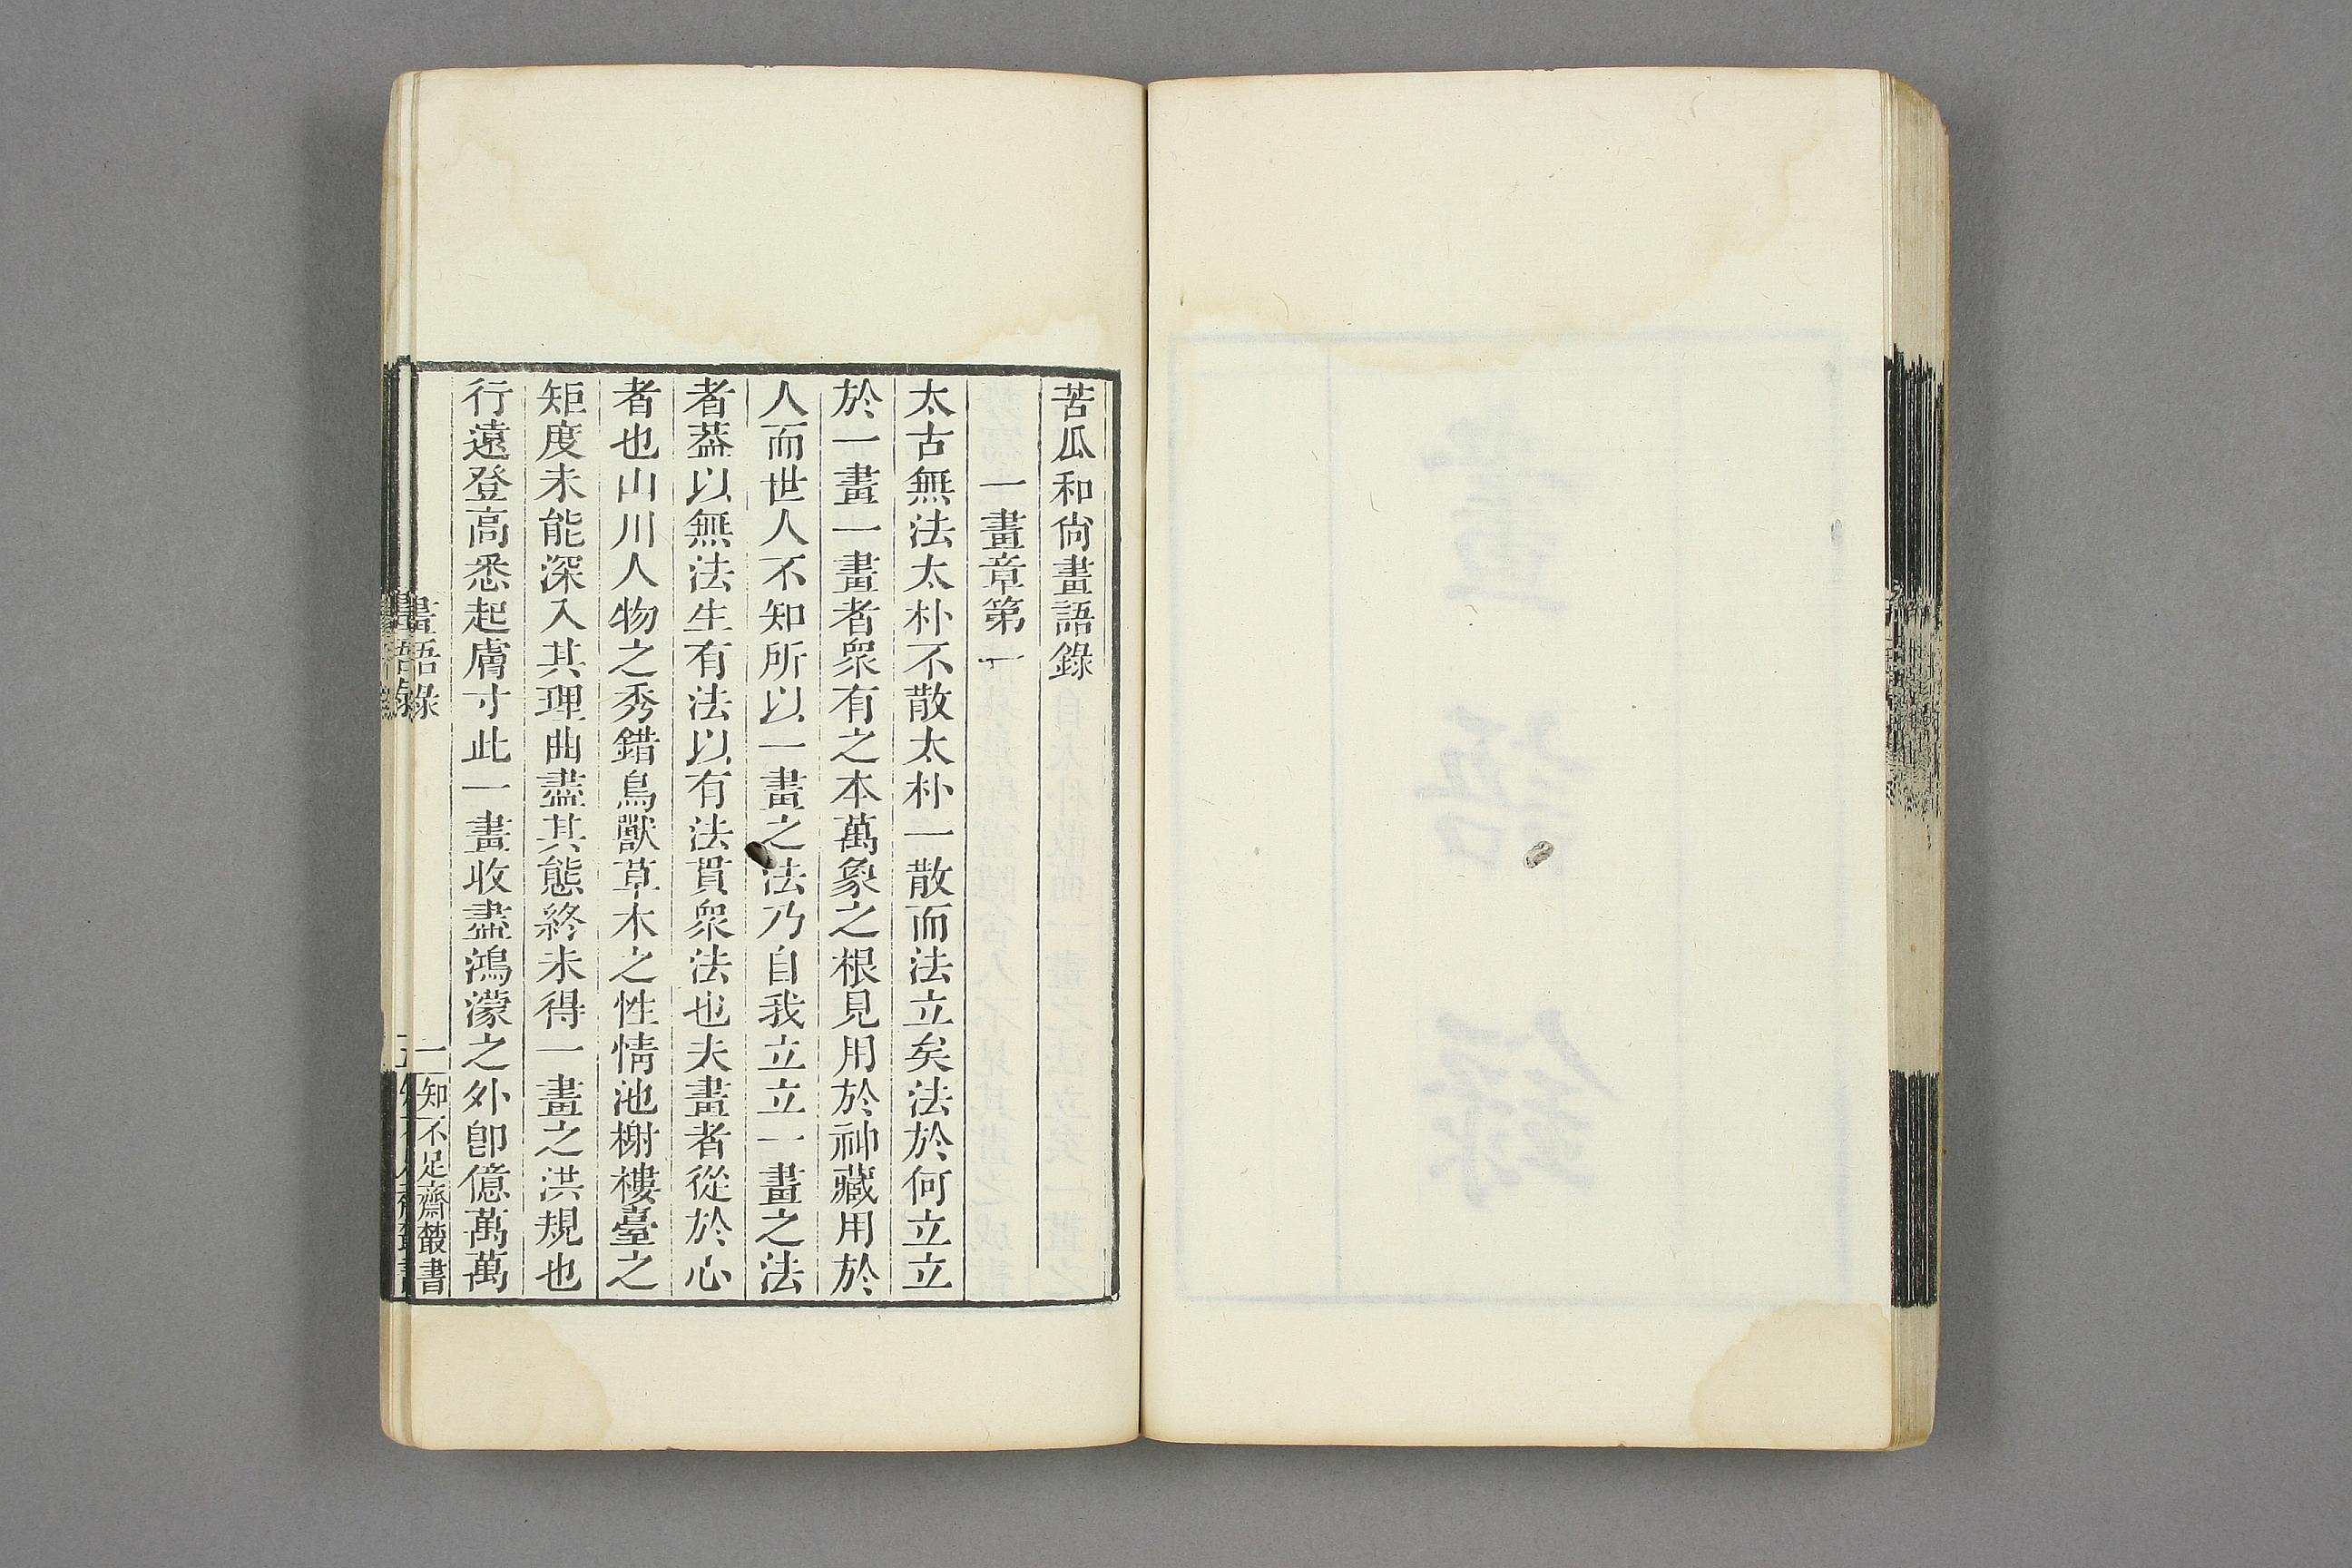 苦瓜和尙畫語錄
一畫章第一
太古無法太朴不散太朴一散而法立矣法於何立立
於一畫一畫者衆有之本萬象之根見用於神藏用於
人而世人不知所以一畫之法乃自我立立一畫之法
者葢以無法生有法以有法貫衆法也夫畫者從於心
者也山川人物之秀錯鳥獸草木之性情池榭樓臺之
矩度未能深入其理曲盡其態終未得一畫之洪規也
行遠登高悉起膚寸此一畫收盡鴻濛之外卽億萬萬
畫語錄
一
知不足齋叢書